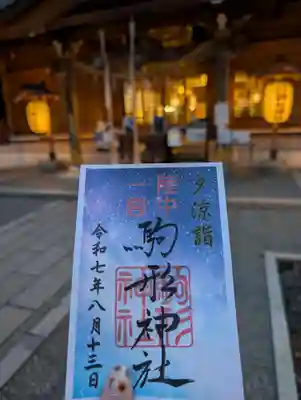 夕涼詣
陸中
一宮
駒形神社
駒形
神社
令和七年八月十三日